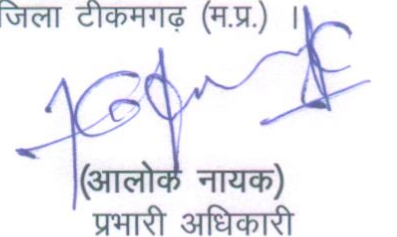 जिला टीकमगढ़ (म.प्र.) ।
(आलोक नायक)
प्रभारी अधिकारी